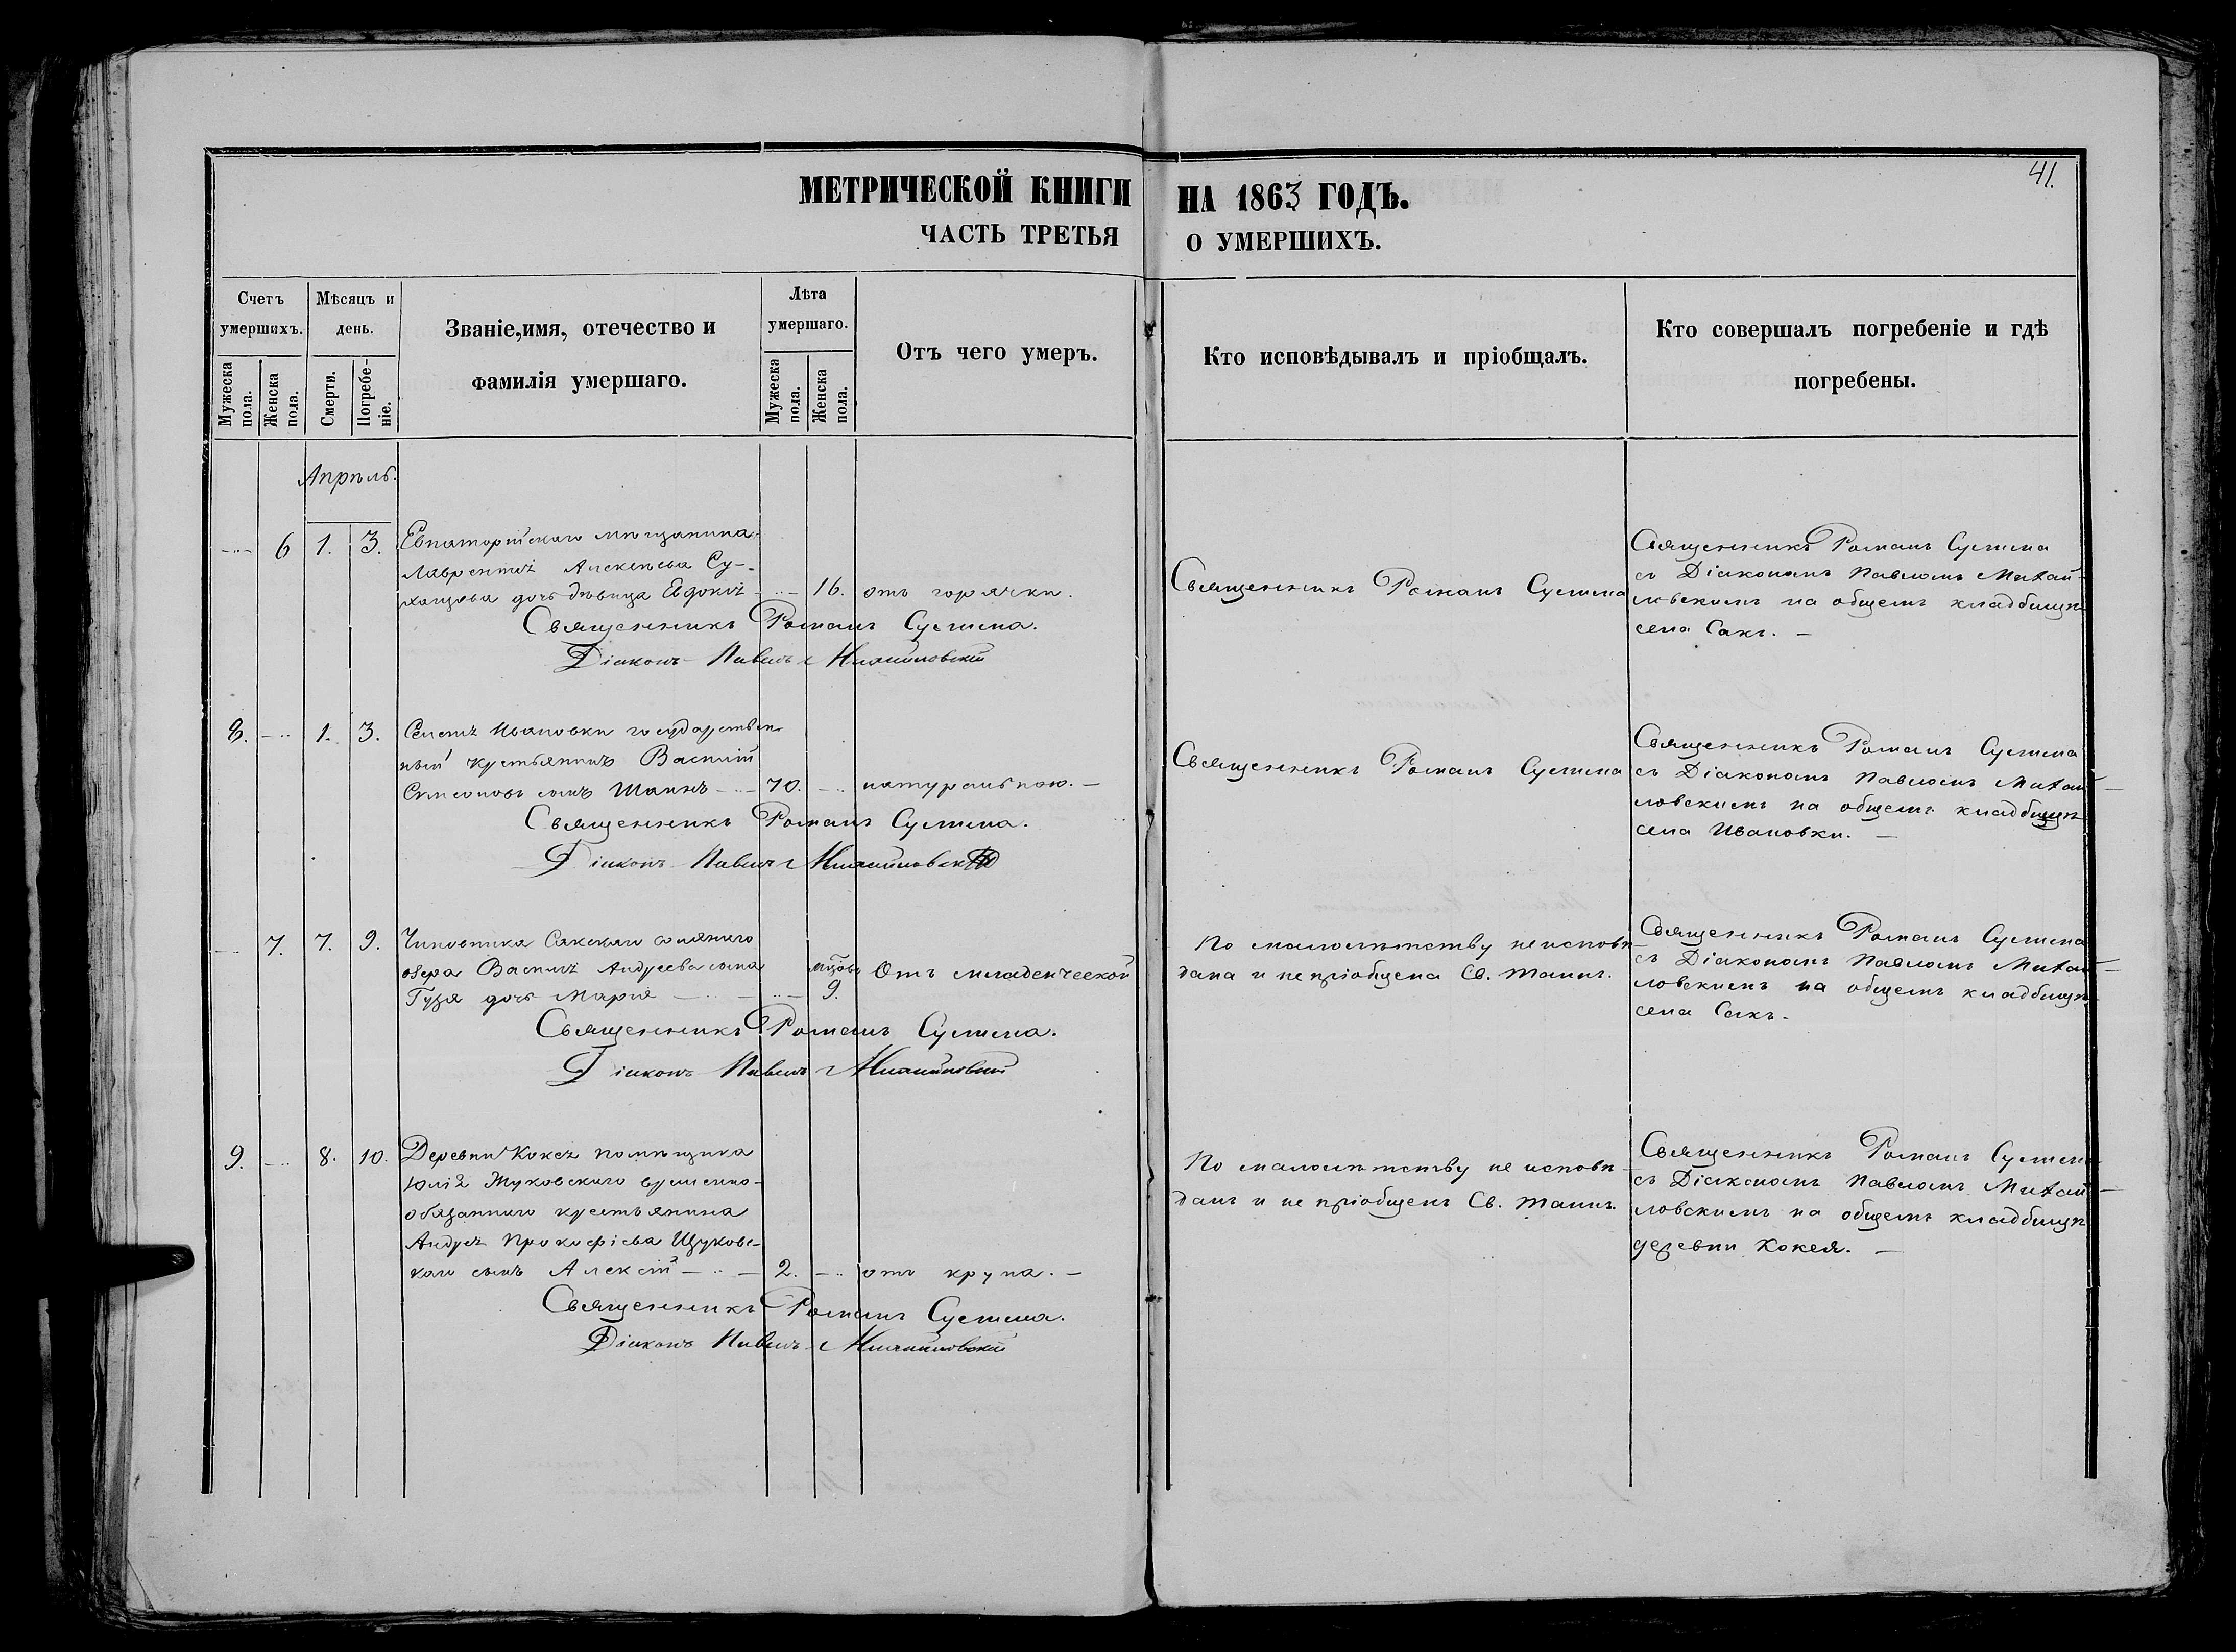 41.
МЕТРИЧЕСКОЙ КНИГИ НА 1863 ГОДЪ.
ЧАСТЬ ТРЕТЬЯ О УМЕРШИХЪ.
Счетъ умершихъ.
Мужеска пола.
Женска пола.
Мѣсяцъ и день.
Смерти.
Погребеніе.
Званіе, имя, отечество и
фамилія умершаго.
Лѣта умершаго.
Мужеска пола.
Женска пола.
Отъ чего умеръ.
Кто исповѣдывалъ и пріобщалъ.
Кто совершалъ погребеніе и гдѣ
погребены.
Апрѣль.
6 1. 3. Евпаторійскаго мѣщанина
Лаврентія Алексѣева Су-
дочь дѣвица Евдокія 16. отъ горячки.
Священникъ Романъ Сустина
Священникъ Романъ Сустина
съ Діакономъ Павломъ Михай-
ловскимъ на общемъ кладбищѣ
села Сакъ. —
Священникъ Романъ Сустина.
Діаконъ Павелъ Михайловскій
8. 1. 3. Селенія Ивановки государствен-
ный крестьянинъ Василій
Симеоновъ сынъ 70. натуральною. —
Священникъ Романъ Сустина
Священникъ Романъ Сустина
съ Діакономъ Павломъ Михай-
ловскимъ на общемъ кладбищѣ
села Ивановки. —
Священникъ Романъ Сустина.
Діаконъ Павелъ Михайловскій
7. 7. 9. Чиновника Сакскаго солянаго
озера Василія Андреева сына
дочь Марія мцовъ 9. Отъ младенческой
По малолѣтству не исповѣ-
дана и не пріобщена Св. таинъ.
Священникъ Романъ Сустина
съ Діакономъ Павломъ Михай-
ловскимъ на общемъ кладбищѣ
села Сакъ.
Священникъ Романъ Сустина.
Діаконъ Павелъ Михайловскій
9. 8. 10. Деревни Кокея помѣщика
Юлія Жуковскаго временно-
обязаннаго крестьянина
Андрея Прокофіева Щуковс-
каго сынъ Алексій 2. отъ крупа. —
По малолѣтству не исповѣ-
данъ и не пріобщенъ Св. таинъ.
Священникъ Романъ Сустина
съ Діакономъ Павломъ Михай-
ловскимъ на общемъ кладбищѣ
деревни Кокея. —
Священникъ Романъ Сустина.
Діаконъ Павелъ Михайловскій